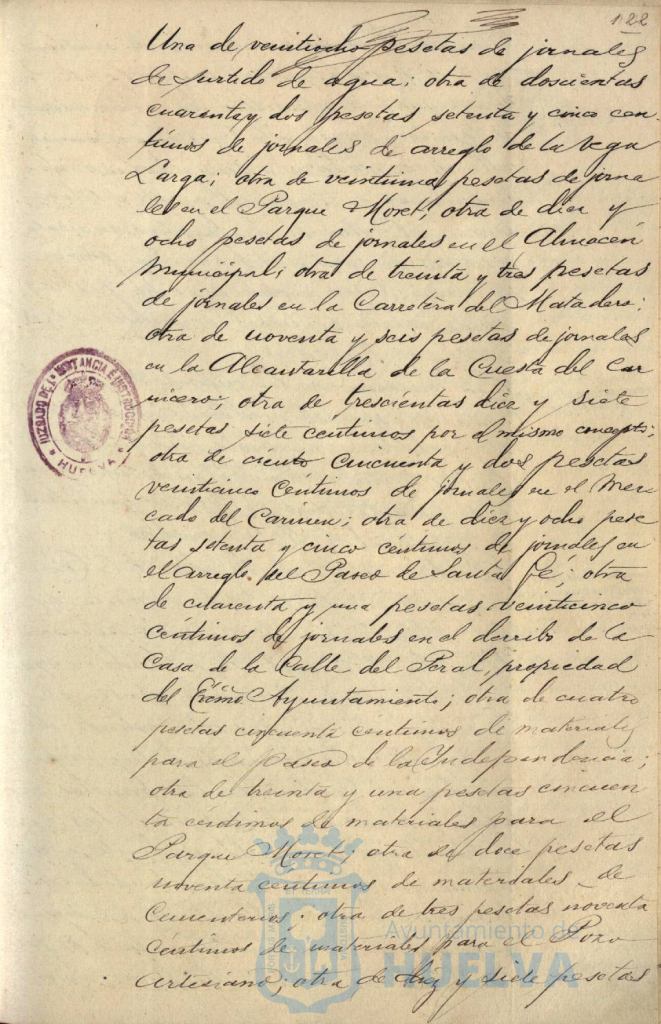 122
Una de veintiocho pesetas de jornales
de surtido de agua; otra de doscientas
cuarenta y dos pesetas setenta y cinco cen-
timos de jornales de arreglo de la Vega
Larga; otra de veintiuna pesetas de jorna
les en el Parque Moret; otra de diez y
ocho pesetas de jornales en el Almacen
Municipal; otra de treinta y tres pesetas
de jornales en la Carretera del Matadero;
otra de noventa y seis pesetas de jornales
en la Alcantarilla de la Cuesta del Car
nicero; otra de trescientas diez y siete
pesetas siete centimos por el mismo concepto;
otra de ciento cincuenta y dos pesetas
veinticinco céntimos de jornales en el Mer-
cado del Carmen; otra de diez y ocho pese
tas setenta y cinco céntimos de jornales en
el arreglo del Paseo de Santa Fé; otra
de cuarenta y una pesetas veinticinco
céntimos de jornales en el derribo de la
Casa de la Calle del Peral, propiedad
del Excmo Ayuntamiento; otra de cuatro
pesetas cincuenta centimos de materiales
para el Paseo de la Independencia;
otra de treinta y una pesetas cincuen
ta centimos de materiales para el
Parque Moret; otra de doce pesetas
noventa centimos de materiales de
Cementerios; otra de tres pesetas noventa
céntimos de materiales para el Pozo
Artesiano; otra de diez y siete pesetas
JUZGADO DE 1ª INSTANCIA E INSTRUCCION
HUELVA
Ayuntamiento de
HUELVA